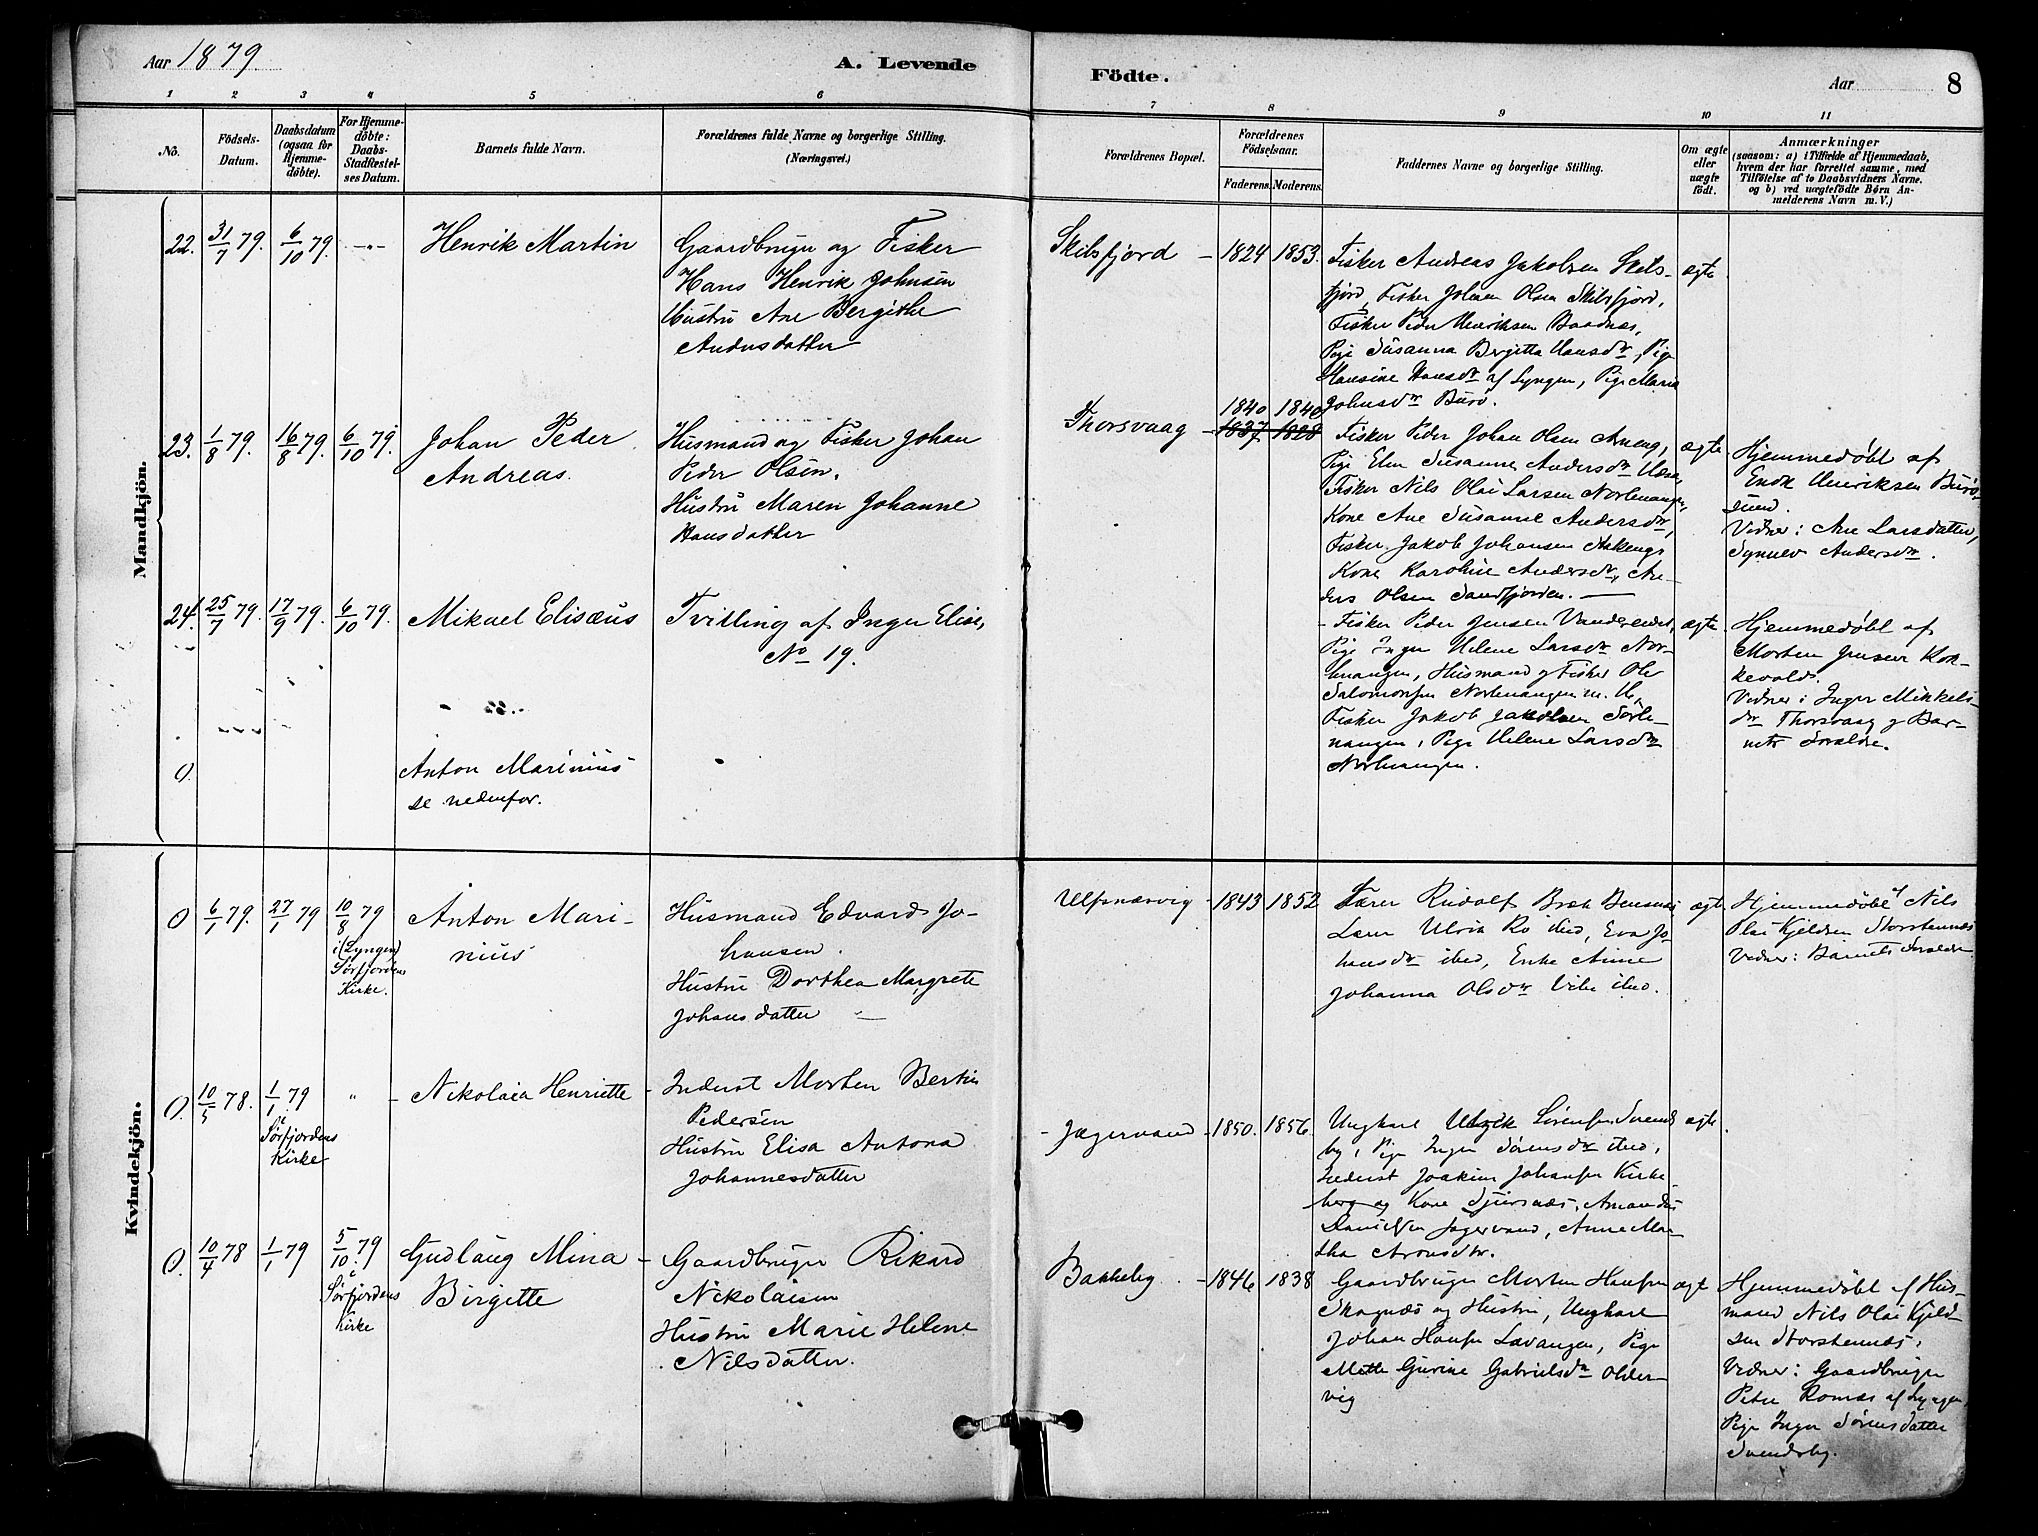 Aar 1879
A. Levende
Födte.
Aar
8
1 2 3 4 5 6 7 8 9 10 11
No.
Födsels-
Datum.
Daabsdatum
(ogsaa for
Hjemme-
döbte).
For Hjemme-
döbte:
Daabs-
Stadfæstel-
ses Datum.
Barnets fulde Navn.
Forældrenes fulde Navne og borgerlige Stilling.
(Næringsvei.)
Forældrenes Bopæl.
Forældrenes
Födselsaar.
Faderens. Moderens.
Faddernes Navne og borgerlige Stilling.
Om ægte
eller
uægte
født.
Anmærkninger
(saasom: a) i Tilfælde af Hjemmedaab,
hvem der har forrettet samme, med
Tilföielse af to Daabsvidners Navne.
og b) ved uægtefödte Börn An-
melderens Navn m.V.)
Mandkjön.
22. 31/7 79. 6/10 79. -"-
Henrik Martin
Gaardbruger og Fisker
Hans Henrik Johnsen
Hustru Ane Bergithe
Andersdatter
Skilsfjord - 1824 1853.
Fisker Andreas Jakobsen Skils-
fjord, Fisker Johan Olsen Skilsfjord,
Fisker Peder Henriksen Baadnæs,
Pige Susanna Bergitta Hansdr, Pige
Hansine Hansdr af Lyngen, Pige Maria
Johnsdr Burö.
ægte
23. 1/8 79. 16/8 79. 6/10 79.
Johan Peder
Andreas.
Husmand og Fisker Johan
Peder Olsen.
Hustru Maren Johanne
Hansdatter
Thorsvaag -
1840 1840
1837 1828
Fisker Peder Johan Olsen
Pige Elen Susanne Andersdr
Fisker Nils Olai Larsen Norlenangen,
Kone Ane Susanne Andersdr,
Fisker Jakob Johansen
Kone Karoline Andersdr, An-
ders Olsen Sandfjorden.
ægte
Hjemmedøbt af
Henriksen Burö-
sund.
Vidner: Ane Larsdatter,
Andersdr.
24. 25/7 79. 17/9 79. 6/10 79.
Mikael Elisæus
Tvilling af Inger Elise,
No 19.
- Fisker Peder Jensen
Pige Inger Helene Larsdr Nor-
lenangen, Husmand og Fisker Ole
Salomonsen Norlenangen m. H.,
Fisker Jakob Jakobsen Sörle-
nangen, Pige Helene Larsdr
Norlenangen.
ægte
Hjemmedøbt af
Morten Jensen Kok-
kevold.
Vidner: Inger Mikkels-
dr Thorsvaag og Bar-
nets Forældre.
0
Anton Marinius
se nedenfor.
Kvindekjön.
0 6/1 79. 27/1 79 10/8 79
i (Lyngen)
Sörfjordens
Kirke.
Anton Mari-
nius
Husmand Edvard Jo-
hansen.
Hustru Dorthea Margrete
Johansdatter
Ulfsnæsvig - 1843 1852
Lærer Rudolf Bræk
Ulrik ibid, Eva Jo-
hansdr ibid, Enke Anne
Johanna Olsdr ibid.
ægte
Hjemmedøbt af Nils
Olai Kjeldsen Storstennæs
Vidner: Barnets Forældre
0. 10/5 78. 1/1 79
i
Sörfjordens
Kirke
"
Nikolaia Henriette -
Inderst Morten Bertin
Pedersen
Hustru Elisa Antona
Johannesdatter
- Jægervand - 1850. 1856.
Ungkarl Sörensen Svends-
by, Pige Inger Sörensdr ibid,
Inderst Joakim Johansen Kirke-
berg og Kone Sjursnæs, Amandus
Danielsen Jægervand, Anne Mar-
tha Aronsdtr.
ægte
0. 10/4 78 1/1 79 5/10 79
i
Sörfjordens
Kirke
Gudlaug Mina -
Birgitte
Gaardbruger Rikard
Nikolaisen
Hustru Marie Helene
Nilsdatter.
Bakkeby. - 1846 1838
Gaardbruger Morten Hansen
Skognæs og Hustru, Ungkarl
Johan Hansen Lavangen, Pige
Mette Gurine Gabrielsdr Older-
vig
ægte
Hjemmedøbt af Hus-
mand Nils Olai Kjeld-
sen Storstennæs,
Vidner: Gaardbruger
Peter af Lyngen
Pige Inger Sörensdatter
Svendsby.